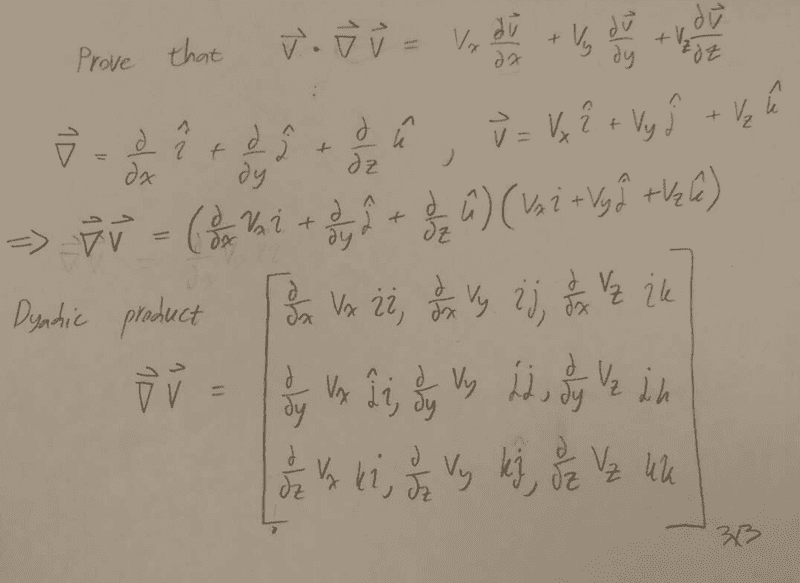 Prove that \vec{V} \cdot \vec{\nabla} \vec{V} = V_x \frac{\partial \vec{v}}{\partial x} + V_y \frac{\partial \vec{v}}{\partial y} + V_z \frac{\partial \vec{v}}{\partial z}
\vec{\nabla} = \frac{\partial}{\partial x} \hat{i} + \frac{\partial}{\partial y} \hat{j} + \frac{\partial}{\partial z} \hat{k} , \vec{v} = V_x \hat{i} + V_y \hat{j} + V_z \hat{k}
\Rightarrow \vec{\nabla} \vec{V} = ( \frac{\partial}{\partial x} V_x i + \frac{\partial}{\partial y} \hat{j} + \frac{\partial}{\partial z} \hat{k} ) ( V_x i + V_y \hat{j} + V_z \hat{k} )
Dyadic product
\vec{\nabla} \vec{V} = [
\frac{\partial}{\partial x} V_x ii, \frac{\partial}{\partial x} V_y ij, \frac{\partial}{\partial x} V_z ik
\frac{\partial}{\partial y} V_x \hat{j}i, \frac{\partial}{\partial y} V_y jj, \frac{\partial}{\partial y} V_z jk
\frac{\partial}{\partial z} V_x ki, \frac{\partial}{\partial z} V_y k\hat{j}, \frac{\partial}{\partial z} V_z kk
] 3x3